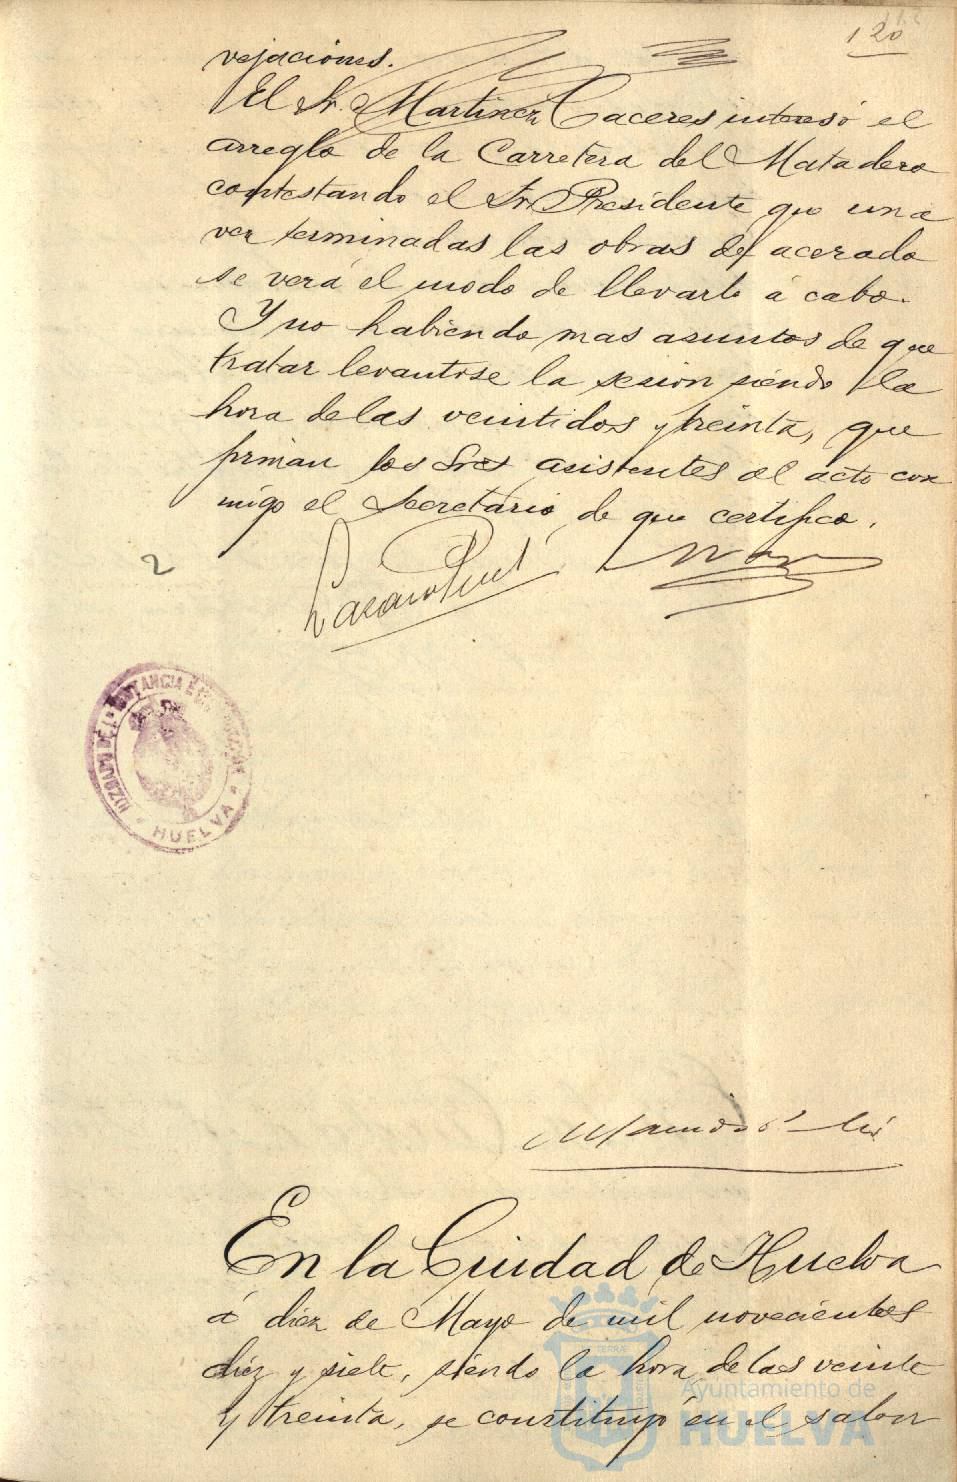 120
vejaciones.
El Sr. Martinez Caceres interesó el
arreglo de la Carretera del Matadero
contestando el Sr Presidente que una
vez terminadas las obras de acerado
se verá el modo de llevarlo á cabo.
Y no habiendo mas asuntos de que
tratar levantose la sesion siendo la
hora de las veintidos y treinta, que
firman los Sres asistentes al acto con
migo el Secretario de que certifico.
2
HUELVA
En la Ciudad de Huelva
á diez de Mayo de mil novecientos
diez y siete, siendo la hora de las veinte
y treinta, se constituyó en el salon
Ayuntamiento de
HUELVA